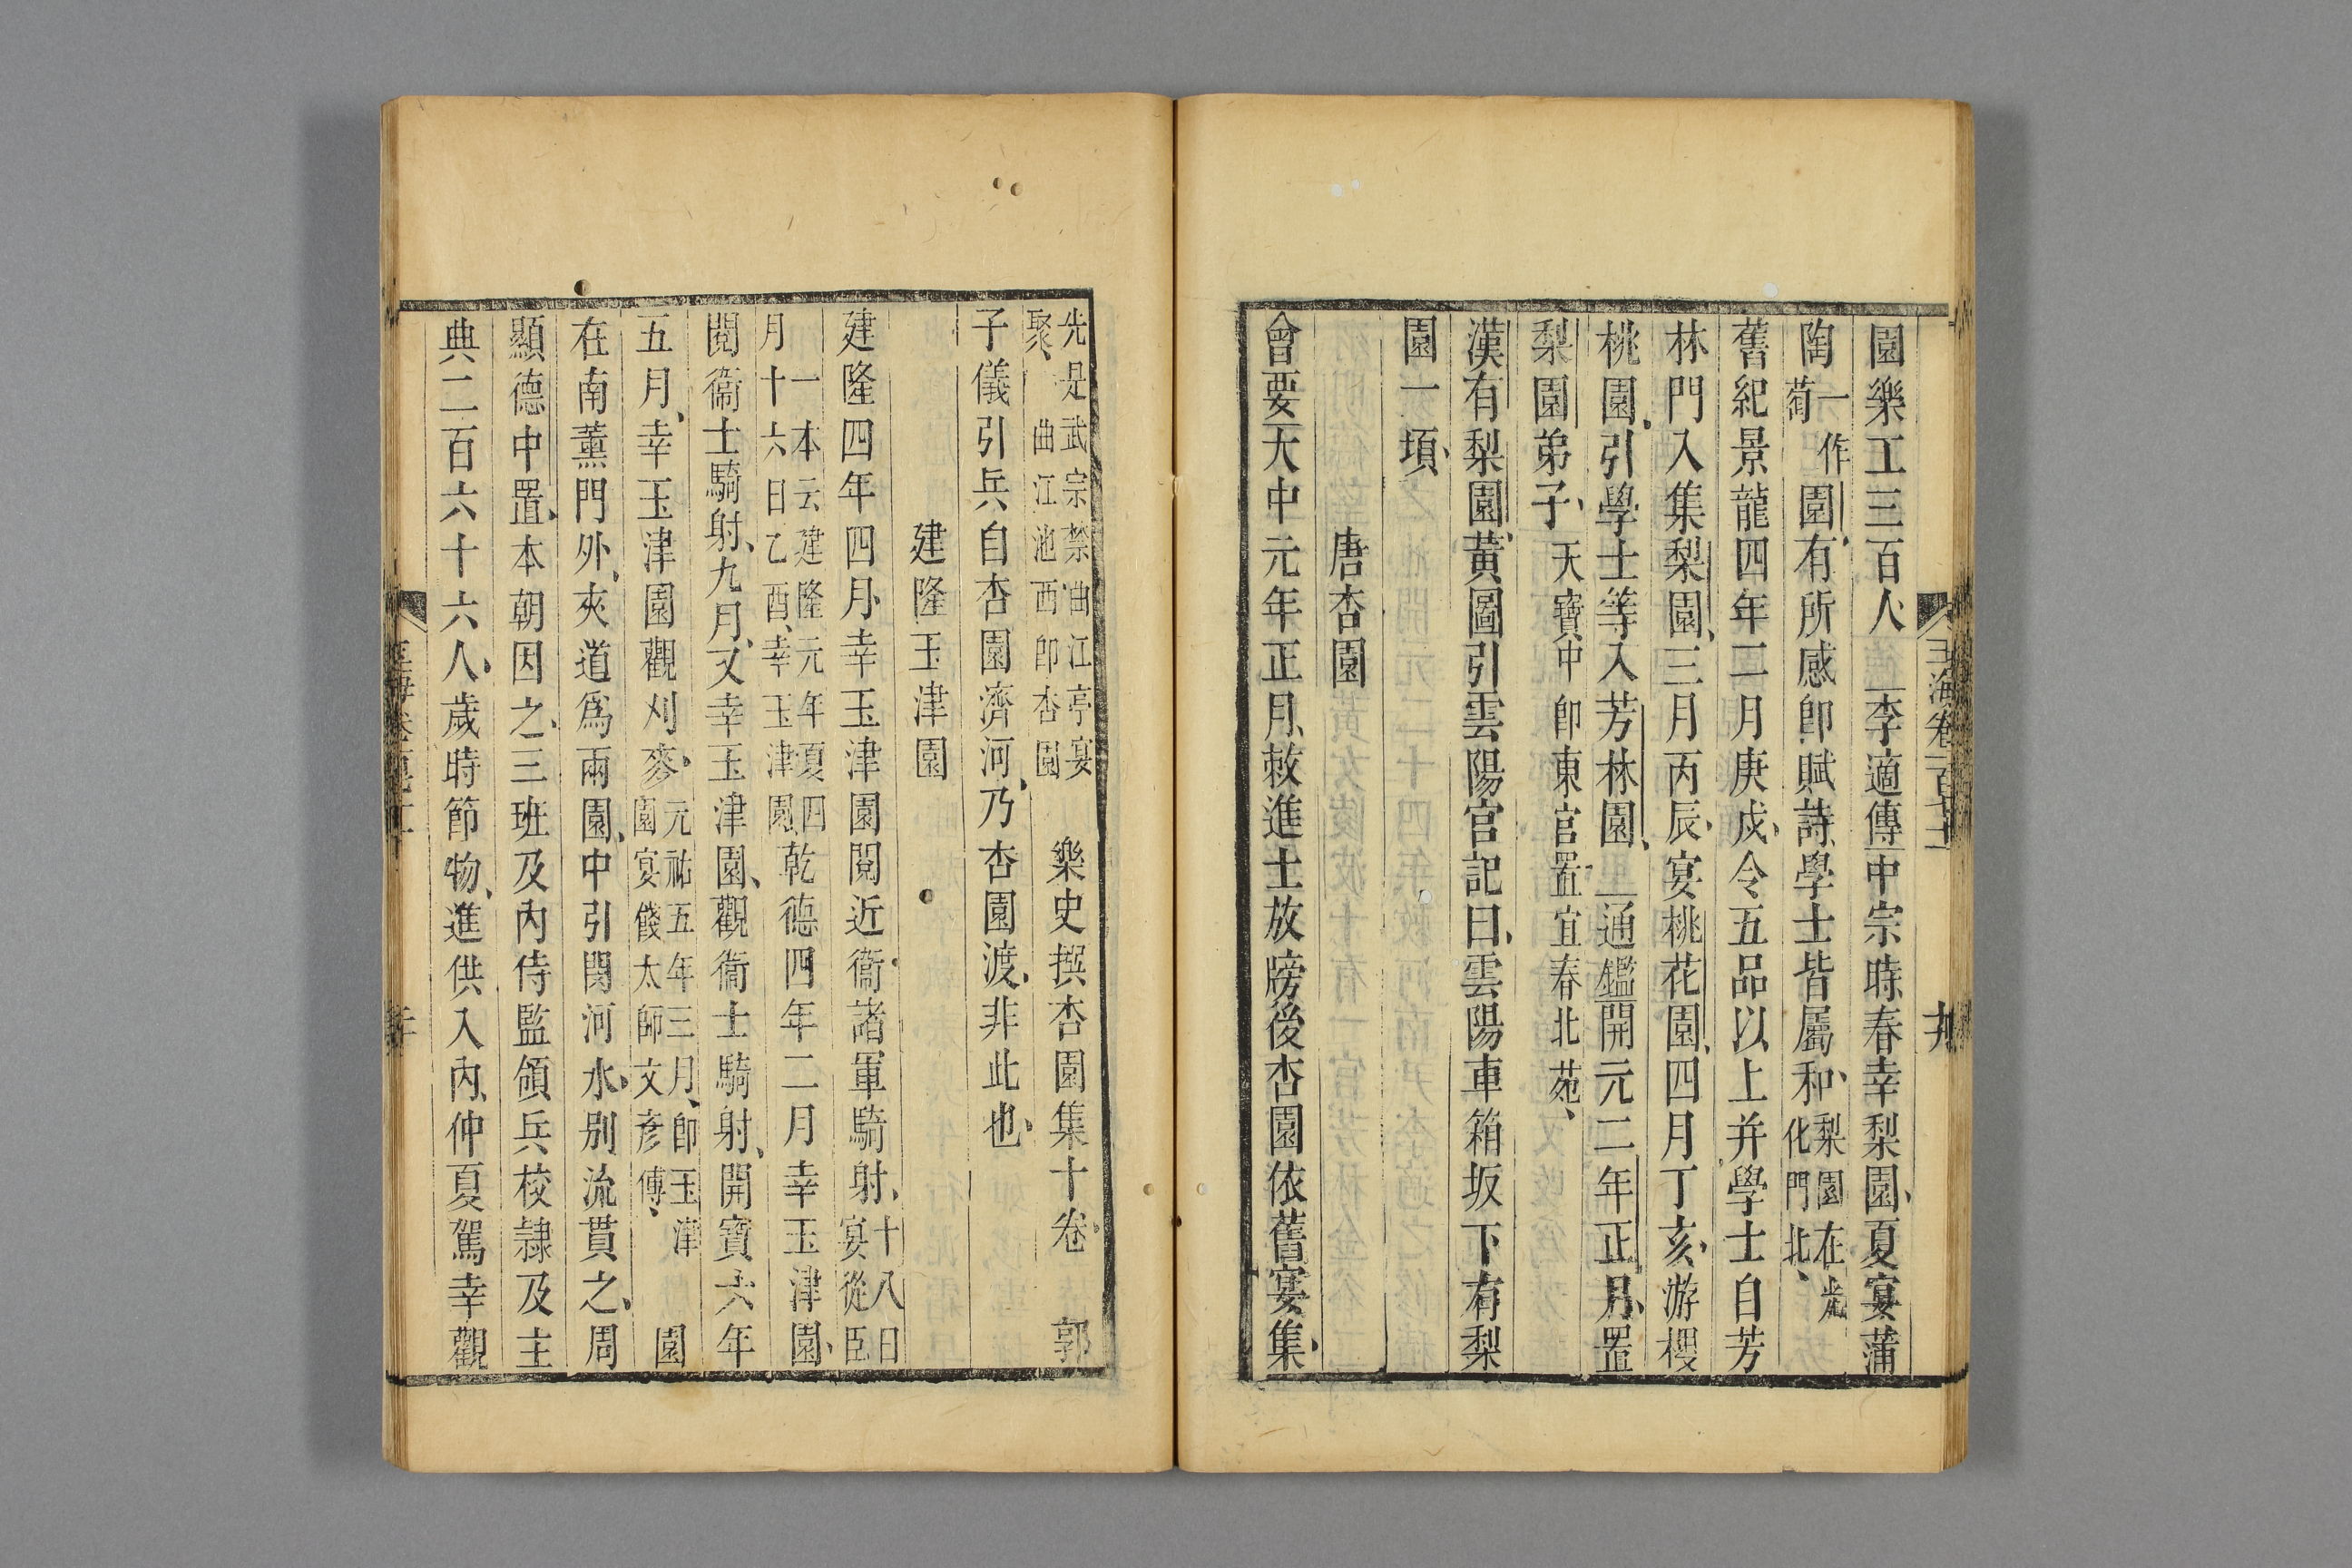 園樂工三百人李適傳中宗時春幸梨園夏宴蒲
陶一作萄園有所感卽賦詩學士皆屬和梨園在光化門北
舊紀景龍四年二月庚戌令五品以上幷學士自芳
林門入集梨園三月丙辰宴桃花園四月丁亥游櫻
桃園引學士等入芳林園通鑑開元二年正月置
梨園弟子天寶中卽東宮置宜春北苑
漢有梨園黃圖引雲陽宮記曰雲陽車箱坂下有梨
園一頃
唐杏園
會要大中元年正月敕進士放牓後杏園依舊宴集
先是武宗禁曲江亭宴聚曲江池西卽杏園樂史撰杏園集十卷郭
子儀引兵自杏園濟河乃杏園渡非此也
建隆玉津園
建隆四年四月幸玉津園閱近衞諸軍騎射十八日宴從臣
一本云建隆元年夏四月十六日乙酉幸玉津園乾德四年二月幸玉津園
閱衞士騎射九月又幸玉津園觀衞士騎射開寶六年
五月幸玉津園觀刈麥元祐五年三月卽玉津園宴餞太師文彥傳園
在南薰門外夾道爲兩園中引閔河水別流貫之周
顯德中置本朝因之三班及內侍監領兵校隷及主
典二百六十六人歲時節物進供入內仲夏駕幸觀